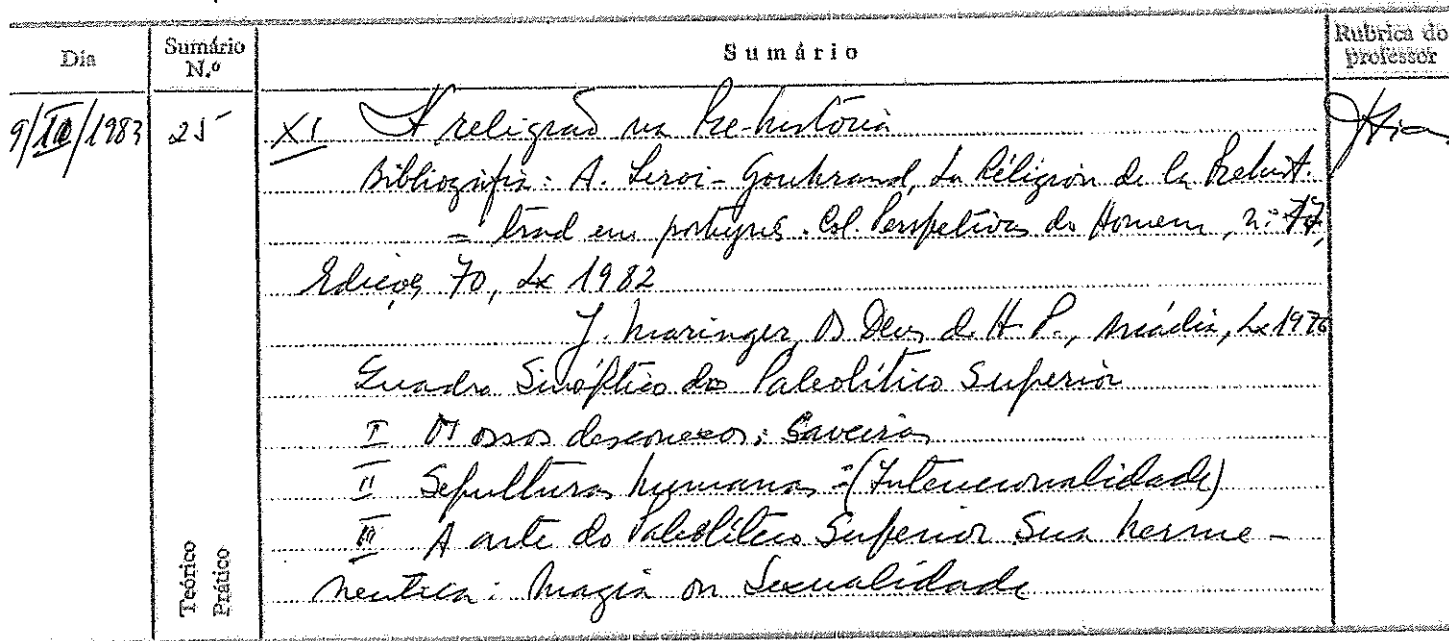 Dia
Sumário N.º
Sumário
Rubrica do professor
9/III/1983
25
XI A religião na Pré-história
Bibliografia: A. Leroi-Gourhand, La Réligion de la Prehist.
= trad em português. Col. Perspetivas do Homem, nº 17,
Edições 70, Lx 1982
J. Maringer, Os Deus. d. H. P., Arcádia, Lx 1976
Quadro Sinóptico do Paleolítico Superior
I Os ossos desconexos:
II Sepulturas humanas = (Intencionalidade)
III A arte do Paleolítico Superior Sua herme-
nêutica: Magia ou Sexualidade
Teórico
Prático